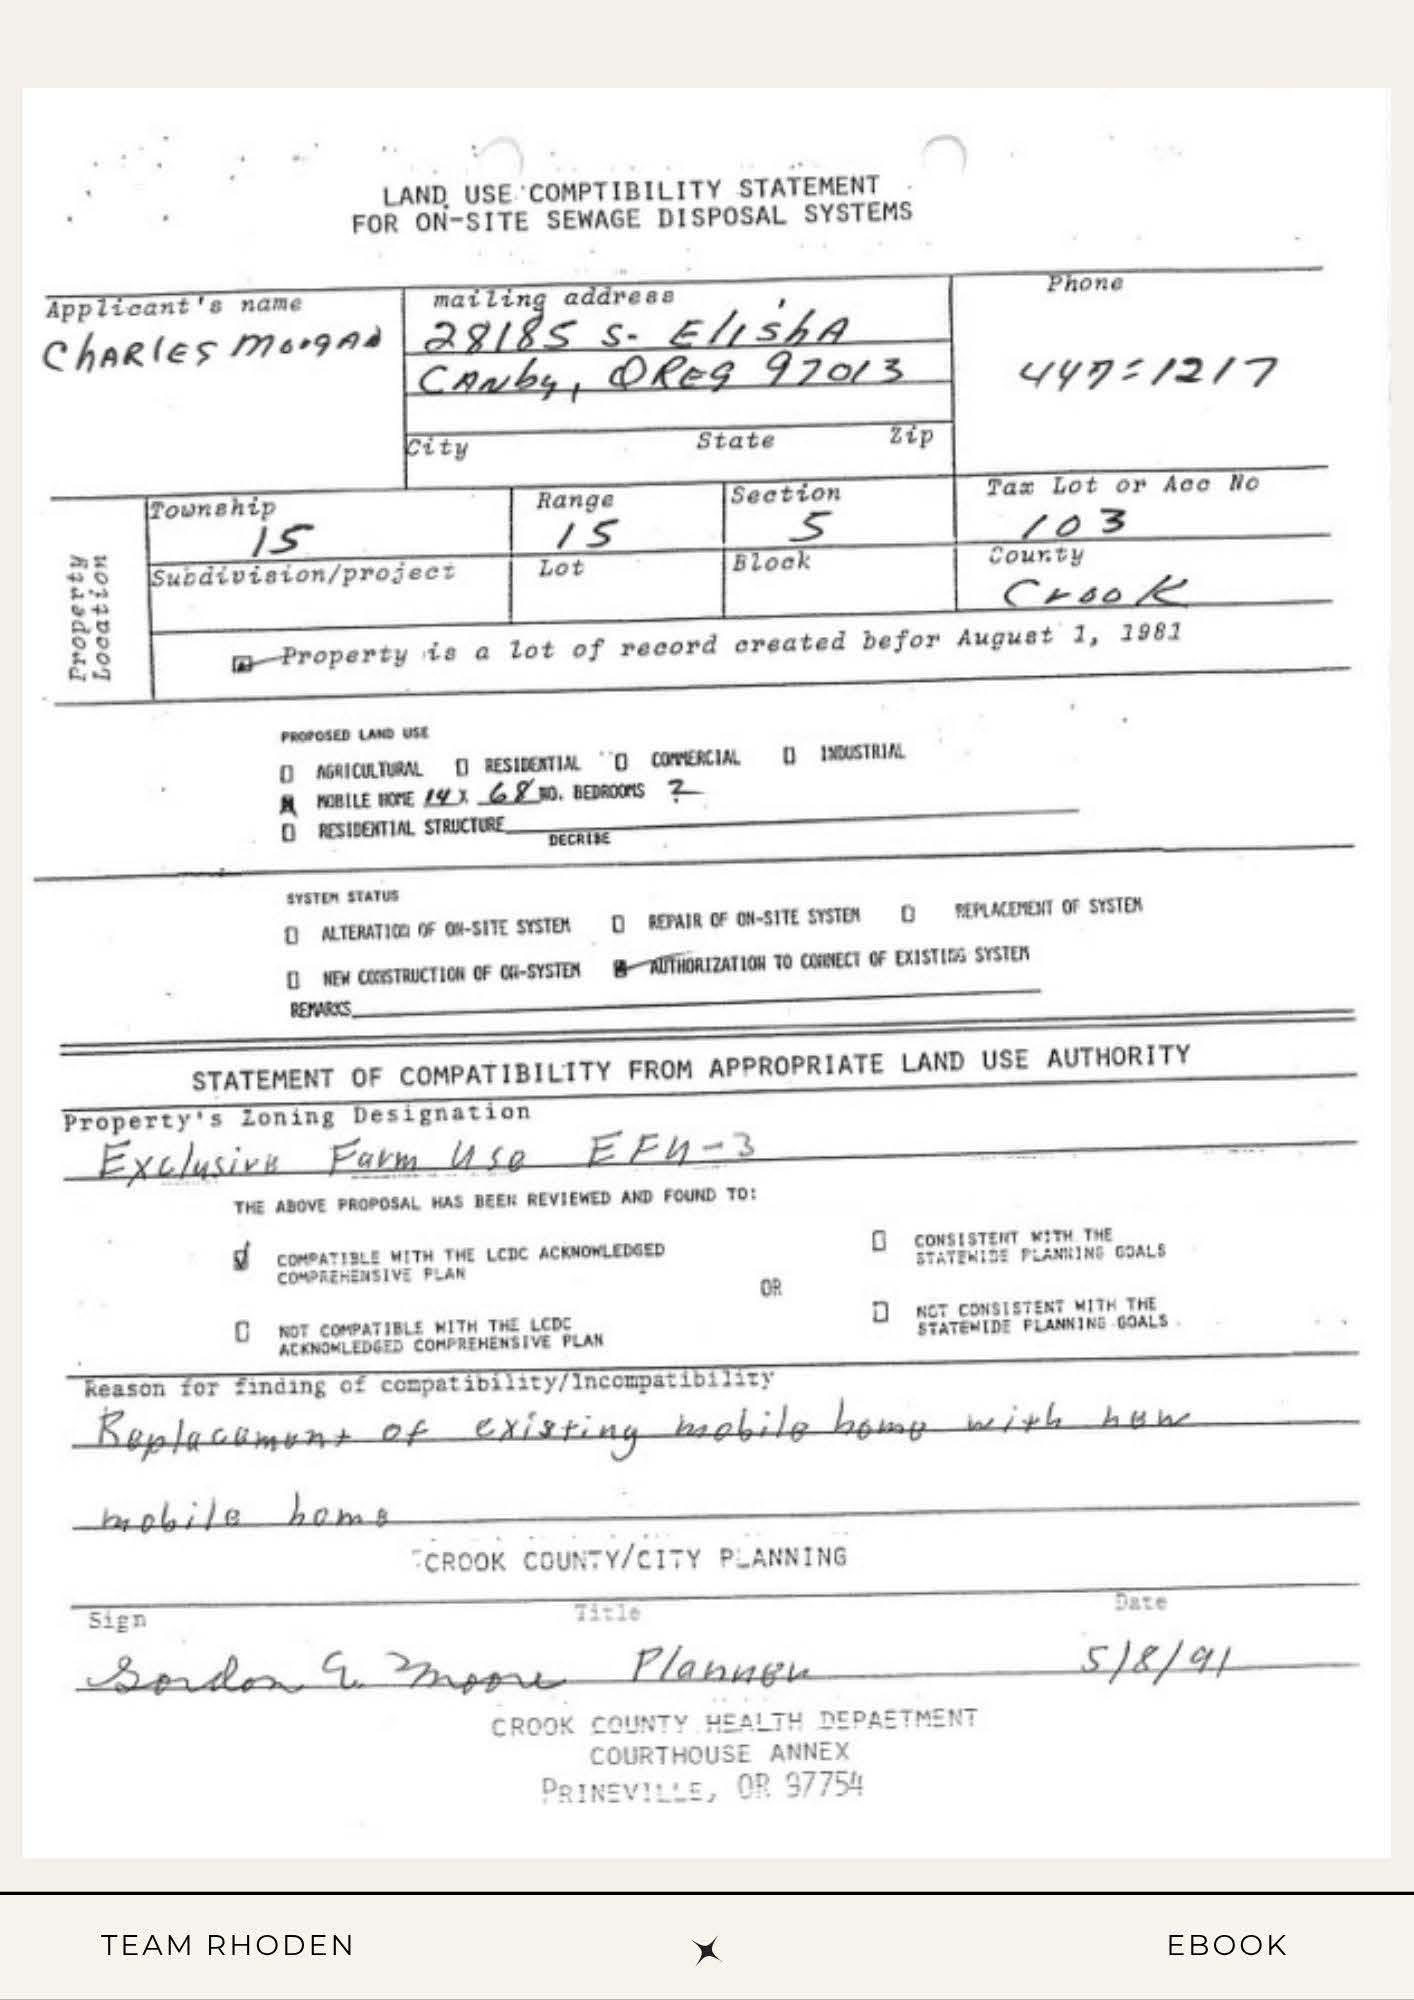 LAND USE COMPTIBILITY STATEMENT
FOR ON-SITE SEWAGE DISPOSAL SYSTEMS
Applicant's name
mailing address
Phone
CHARLES MorgAN
28185 S. ElishA
CANby, OREG 97013
447-1217
City State Zip
Property Location
Township Range Section Tax Lot or Acc No
15 15 5 103
Subdivision/project Lot Block County
Crook
Property is a lot of record created befor August 1, 1981
PROPOSED LAND USE
AGRICULTURAL RESIDENTIAL COMMERCIAL INDUSTRIAL
MOBILE HOME 14 X 68 NO. BEDROOMS 2
RESIDENTIAL STRUCTURE
DECRIBE
SYSTEM STATUS
ALTERATION OF ON-SITE SYSTEM REPAIR OF ON-SITE SYSTEM REPLACEMENT OF SYSTEM
NEW CONSTRUCTION OF ON-SYSTEM AUTHORIZATION TO CONNECT OF EXISTING SYSTEM
REMARKS
STATEMENT OF COMPATIBILITY FROM APPROPRIATE LAND USE AUTHORITY
Property's Zoning Designation
Exclusive Farm Use EFU-3
THE ABOVE PROPOSAL HAS BEEN REVIEWED AND FOUND TO:
COMPATIBLE WITH THE LCDC ACKNOWLEDGED
COMPREHENSIVE PLAN
OR
CONSISTENT WITH THE
STATEWIDE PLANNING GOALS
NOT COMPATIBLE WITH THE LCDC
ACKNOWLEDGED COMPREHENSIVE PLAN
NOT CONSISTENT WITH THE
STATEWIDE PLANNING GOALS
Reason for finding of compatibility/Incompatibility
Replacement of existing mobile home with new
mobile home
CROOK COUNTY/CITY PLANNING
Sign Title Date
Gordon E. Moore Planner 5/8/91
CROOK COUNTY HEALTH DEPAETMENT
COURTHOUSE ANNEX
PRINEVILLE, OR 97754
TEAM RHODEN
EBOOK